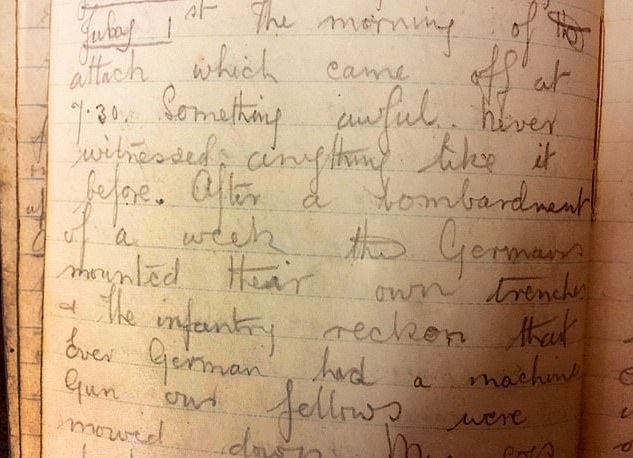 July 1st The morning of the
attack which came off at
7.30. Something awful. Never
witnessed anything like it
before. After a bombardment
of a week the Germans
mounted their own trenches
& the infantry reckon that
Ever German had a machine
Gun our fellows were
mowed down